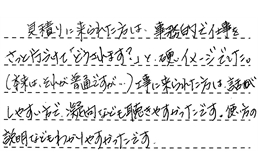 見積りに来られた方は、事務的で仕事を
さっと行って「どうされます?」と、硬いイメージでした。
(本来は、それが普通ですが…)工事に来られた方は、話が
しやすい方で、疑問なども聴きやすかったです。使い方の
説明などもわかりやすかったです。